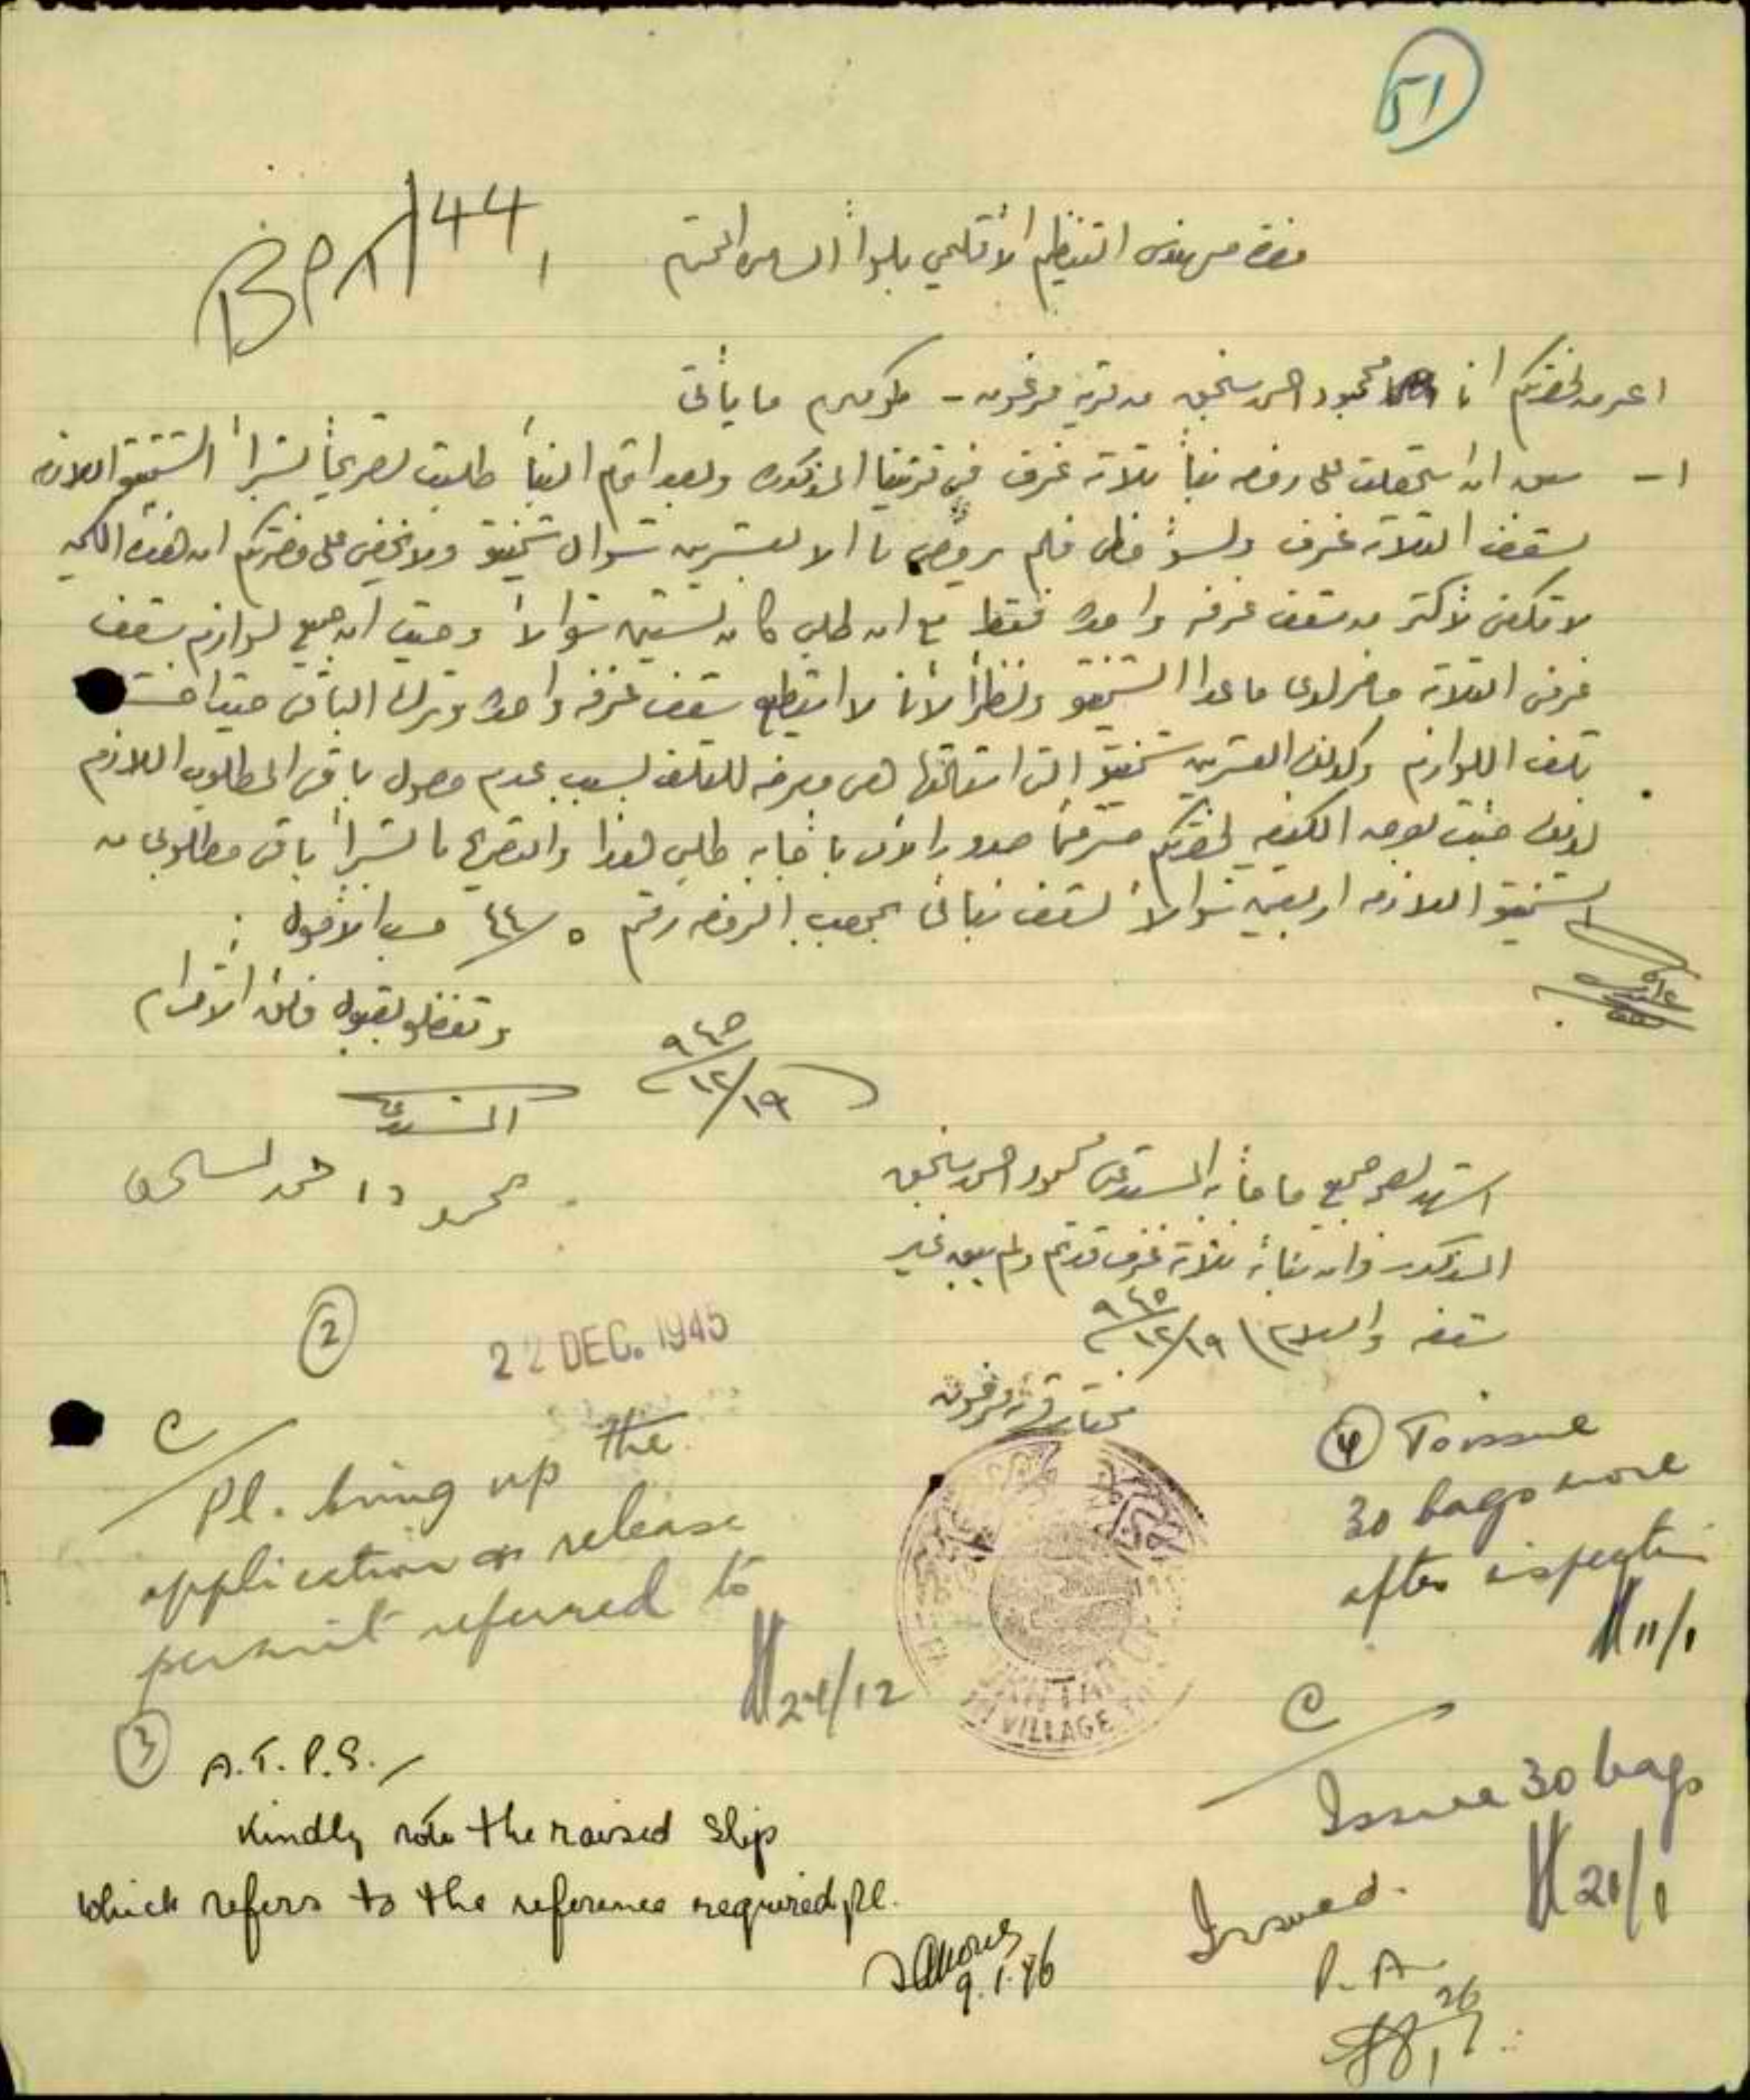 51
BPA/44,
حضرة مهندس التنظيم الاقليمي بلواء السامره المحترم
اعرض لحضرتكم انا محمود احمد من قرية فرخون - طولكرم ما يأتي
١- سبق ان استحصلت على رخصه بناء ثلاثة غرف في قريتنا المذكوره وبعد اتمام البناء طلبت تصريحاً لشراء الشمنتو اللازم
لسقف الثلاثة غرف ولسوء حظي فلم يرخص لي الا بعشرين شوال شمنتو ولا يخفى على حضرتكم ان هذه الكميه
لا تكفي لأكثر من سقف غرفه واحده فقط مع ان طلبي كان لستين شوالاً وحيث ان جميع لوازم سقف
غرفي الثلاثة حاضر لدي ما عدا الشمنتو ونظراً لأني لا استطيع سقف غرفه واحده وترك الباقي حيث
تلف اللوازم وكذلك العشرين شمنتو التي هي معرضه للتلف بسبب عدم وصول باقي المطلوب اللازم
لذلك جئت بهذه لحضرتكم مسترحماً صدور الأمر باجابة طلبي هذا والتصريح لي بشراء باقي مطلوبي من
الشمنتو اللازمه اربعين شوالاً لسقف بنائي بموجب الرخصه رقم ٤٤/٥ حسب الأصول
وتفضلو بقبول فائق الاحترام
٩٤٥/١٢/١٩
المستدعي
محمود احمد
اشهد بصحة جميع ما جاء به المستدعي محمود احمد
المذكور وان بنائه ثلاثة غرف قد تم ولم يبق غير
سقفه والسلام ٩٤٥/١٢/١٩
مختار قرية فرخون
VILLAGE
2
22 DEC. 1945
C/
Pl. bring up the
application or release
permit referred to
24/12
3
A.T.P.S./
Kindly note the raised slip
which refers to the reference required pl.
9.1.46
4 To issue
30 bags more
after inspection
11/1
C/
Issue 30 bags
21/1
Issued.
P.A
26